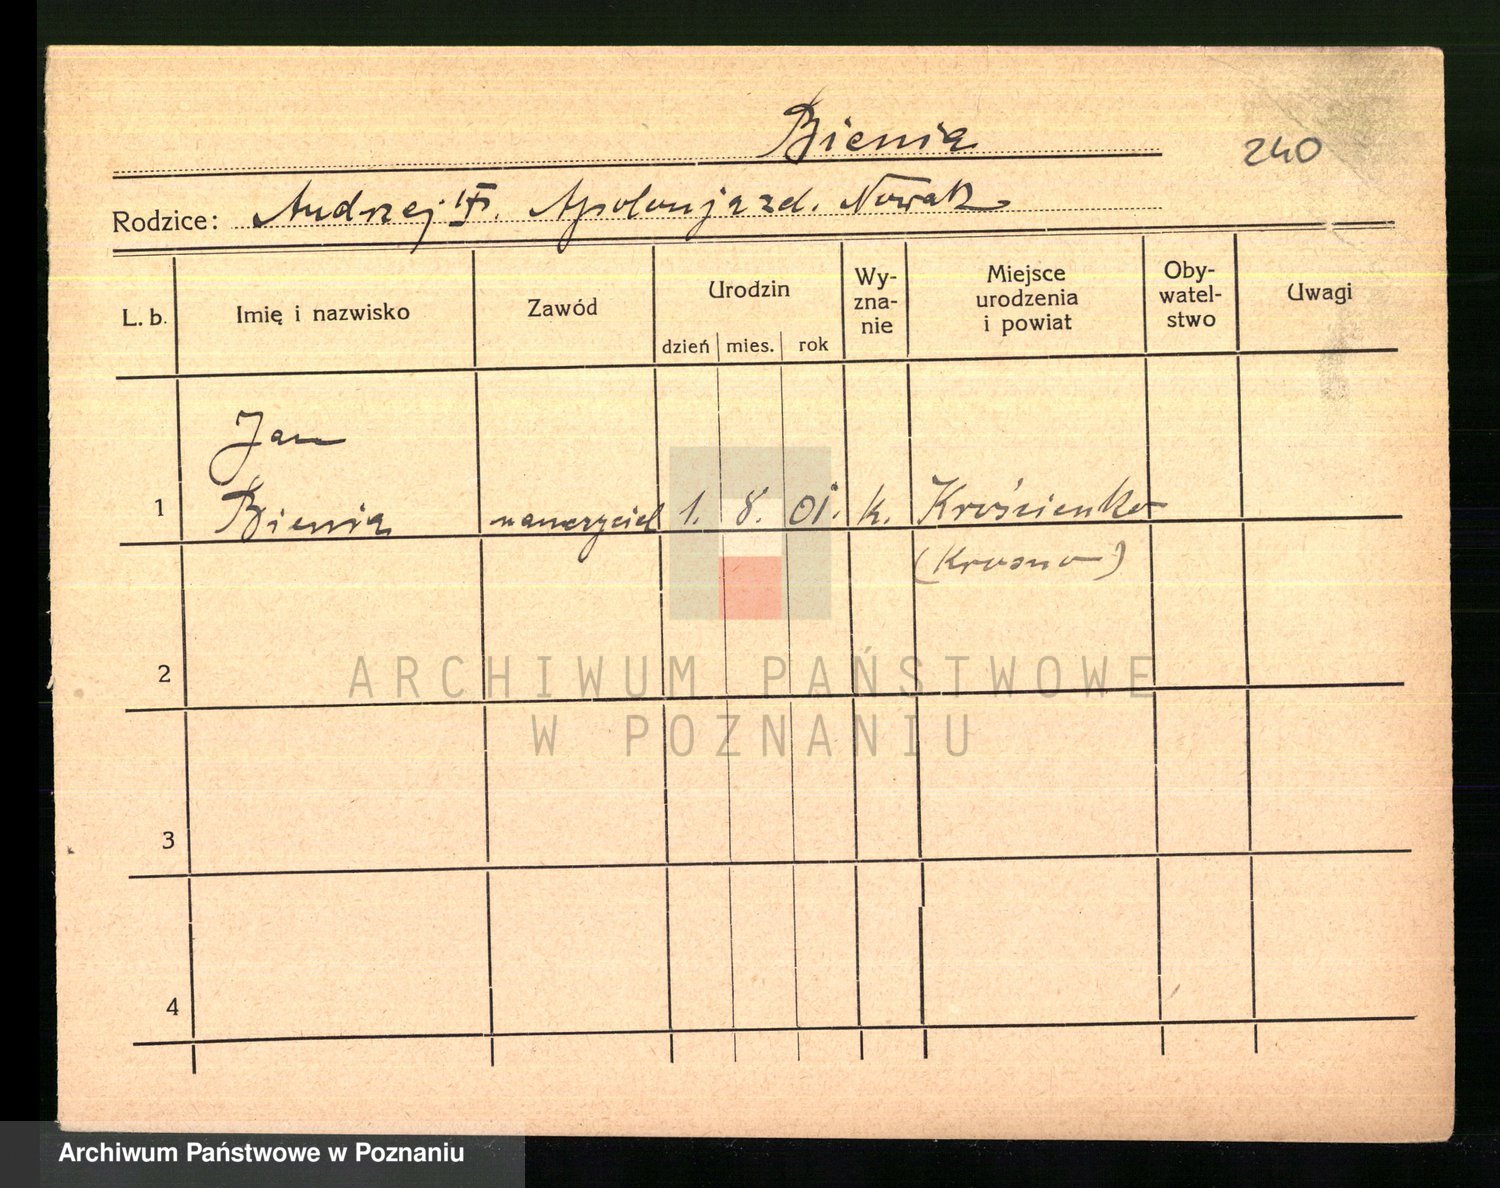 Bienia
240
Rodzice: Andrzej i Apolonja zd. Nowak
L. b. Imię i nazwisko Zawód Urodzin dzień mies. rok Wy-zna-nie Miejsce urodzenia i powiat Oby-watel-stwo Uwagi
Jan
1 Bienia nauczyciel 1. 8. 01. k. Krościenko
(Krosno)
2
ARCHIWUM PAŃSTWOWE
W POZNANIU
3
4
Archiwum Państwowe w Poznaniu